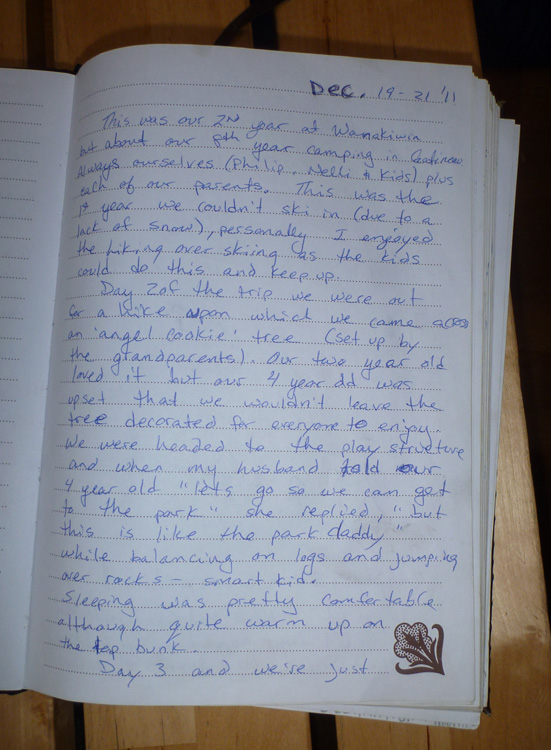 Dec. 19-21 '11
This was our 2nd year at Wanakiwin
but about our 8th year camping in Gatineau
Always ourselves (Philip, Nelli & kids) plus
each of our parents. This was the
1st year we couldn't ski in (due to a
lack of snow), personally I enjoyed
the hiking over skiing as the kids
could do this and keep up.
Day 2 of the trip we were out
for a hike upon which we came across
an 'angel cookie' tree (set up by
the grandparents). Our two year old
loved it but our 4 year old was
upset that we wouldn't leave the
tree decorated for everyone to enjoy.
We were headed to the play structure
and when my husband told our
4 year old "lets go so we can get
to the park" she replied, "but
this is like the park daddy"
while balancing on logs and jumping
over rocks - smart kid.
Sleeping was pretty comfortable
although quite warm up on
the top bunk.
Day 3 and we're just